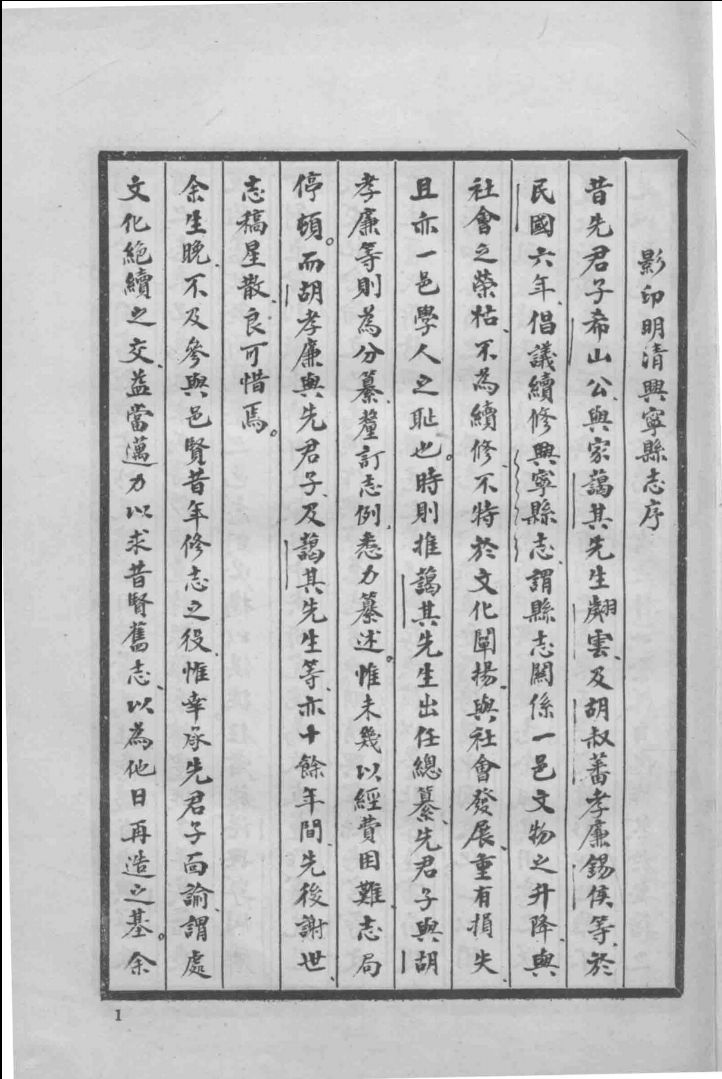 影印明清興寧縣志序
昔先君子希山公、與家藹其先生翽雲、及胡叔蕃孝廉錫侯等、於
民國六年、倡議續修興寧縣志、謂縣志關係一邑文物之升降、與
社會之榮枯、不為續修、不特於文化闡揚、與社會發展、重有損失、
且亦一邑學人之恥也。時則推藹其先生出任總纂、先君子與胡
孝廉等則為分纂、釐訂志例、悉力纂述。惟未幾以經費困難、志局
停頓。而胡孝廉與先君子、及藹其先生等、亦十餘年間、先後謝世、
志稿星散、良可惜焉。
余生晚、不及參與邑賢昔年修志之役、惟幸承先君子面諭、謂處
文化絕續之交、益當邁力以求昔賢舊志、以為他日再造之基。余
1